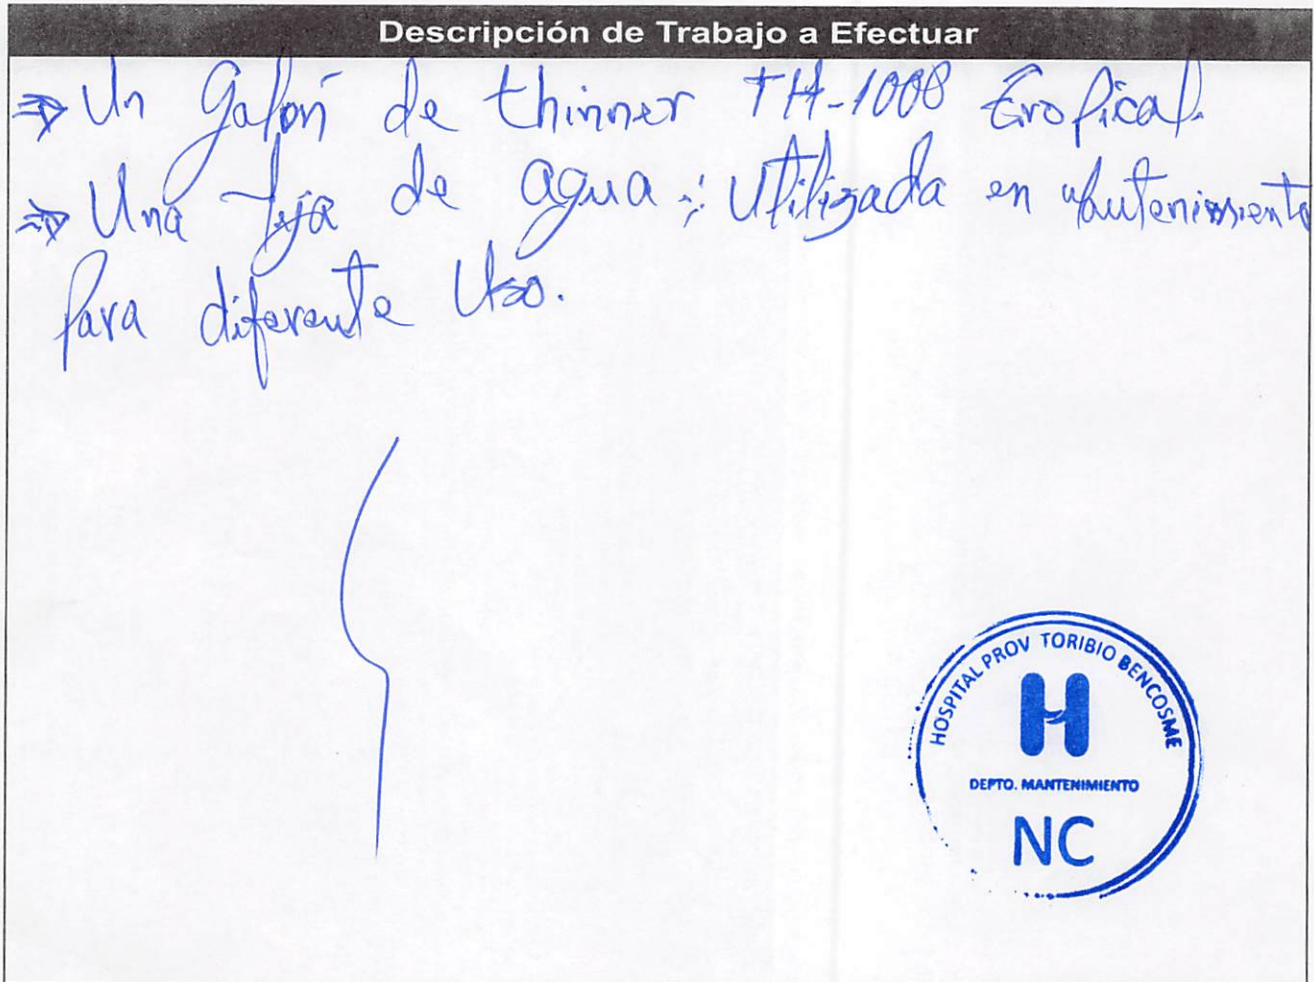 Descripción de Trabajo a Efectuar
⇒ Un Galón de thinner TH-1008 Tropical.
⇒ Una lija de agua; Utilizada en Mantenimiento
Para diferente Uso.
HOSPITAL PROV TORIBIO BENCOSME
H
DEPTO. MANTENIMIENTO
NC